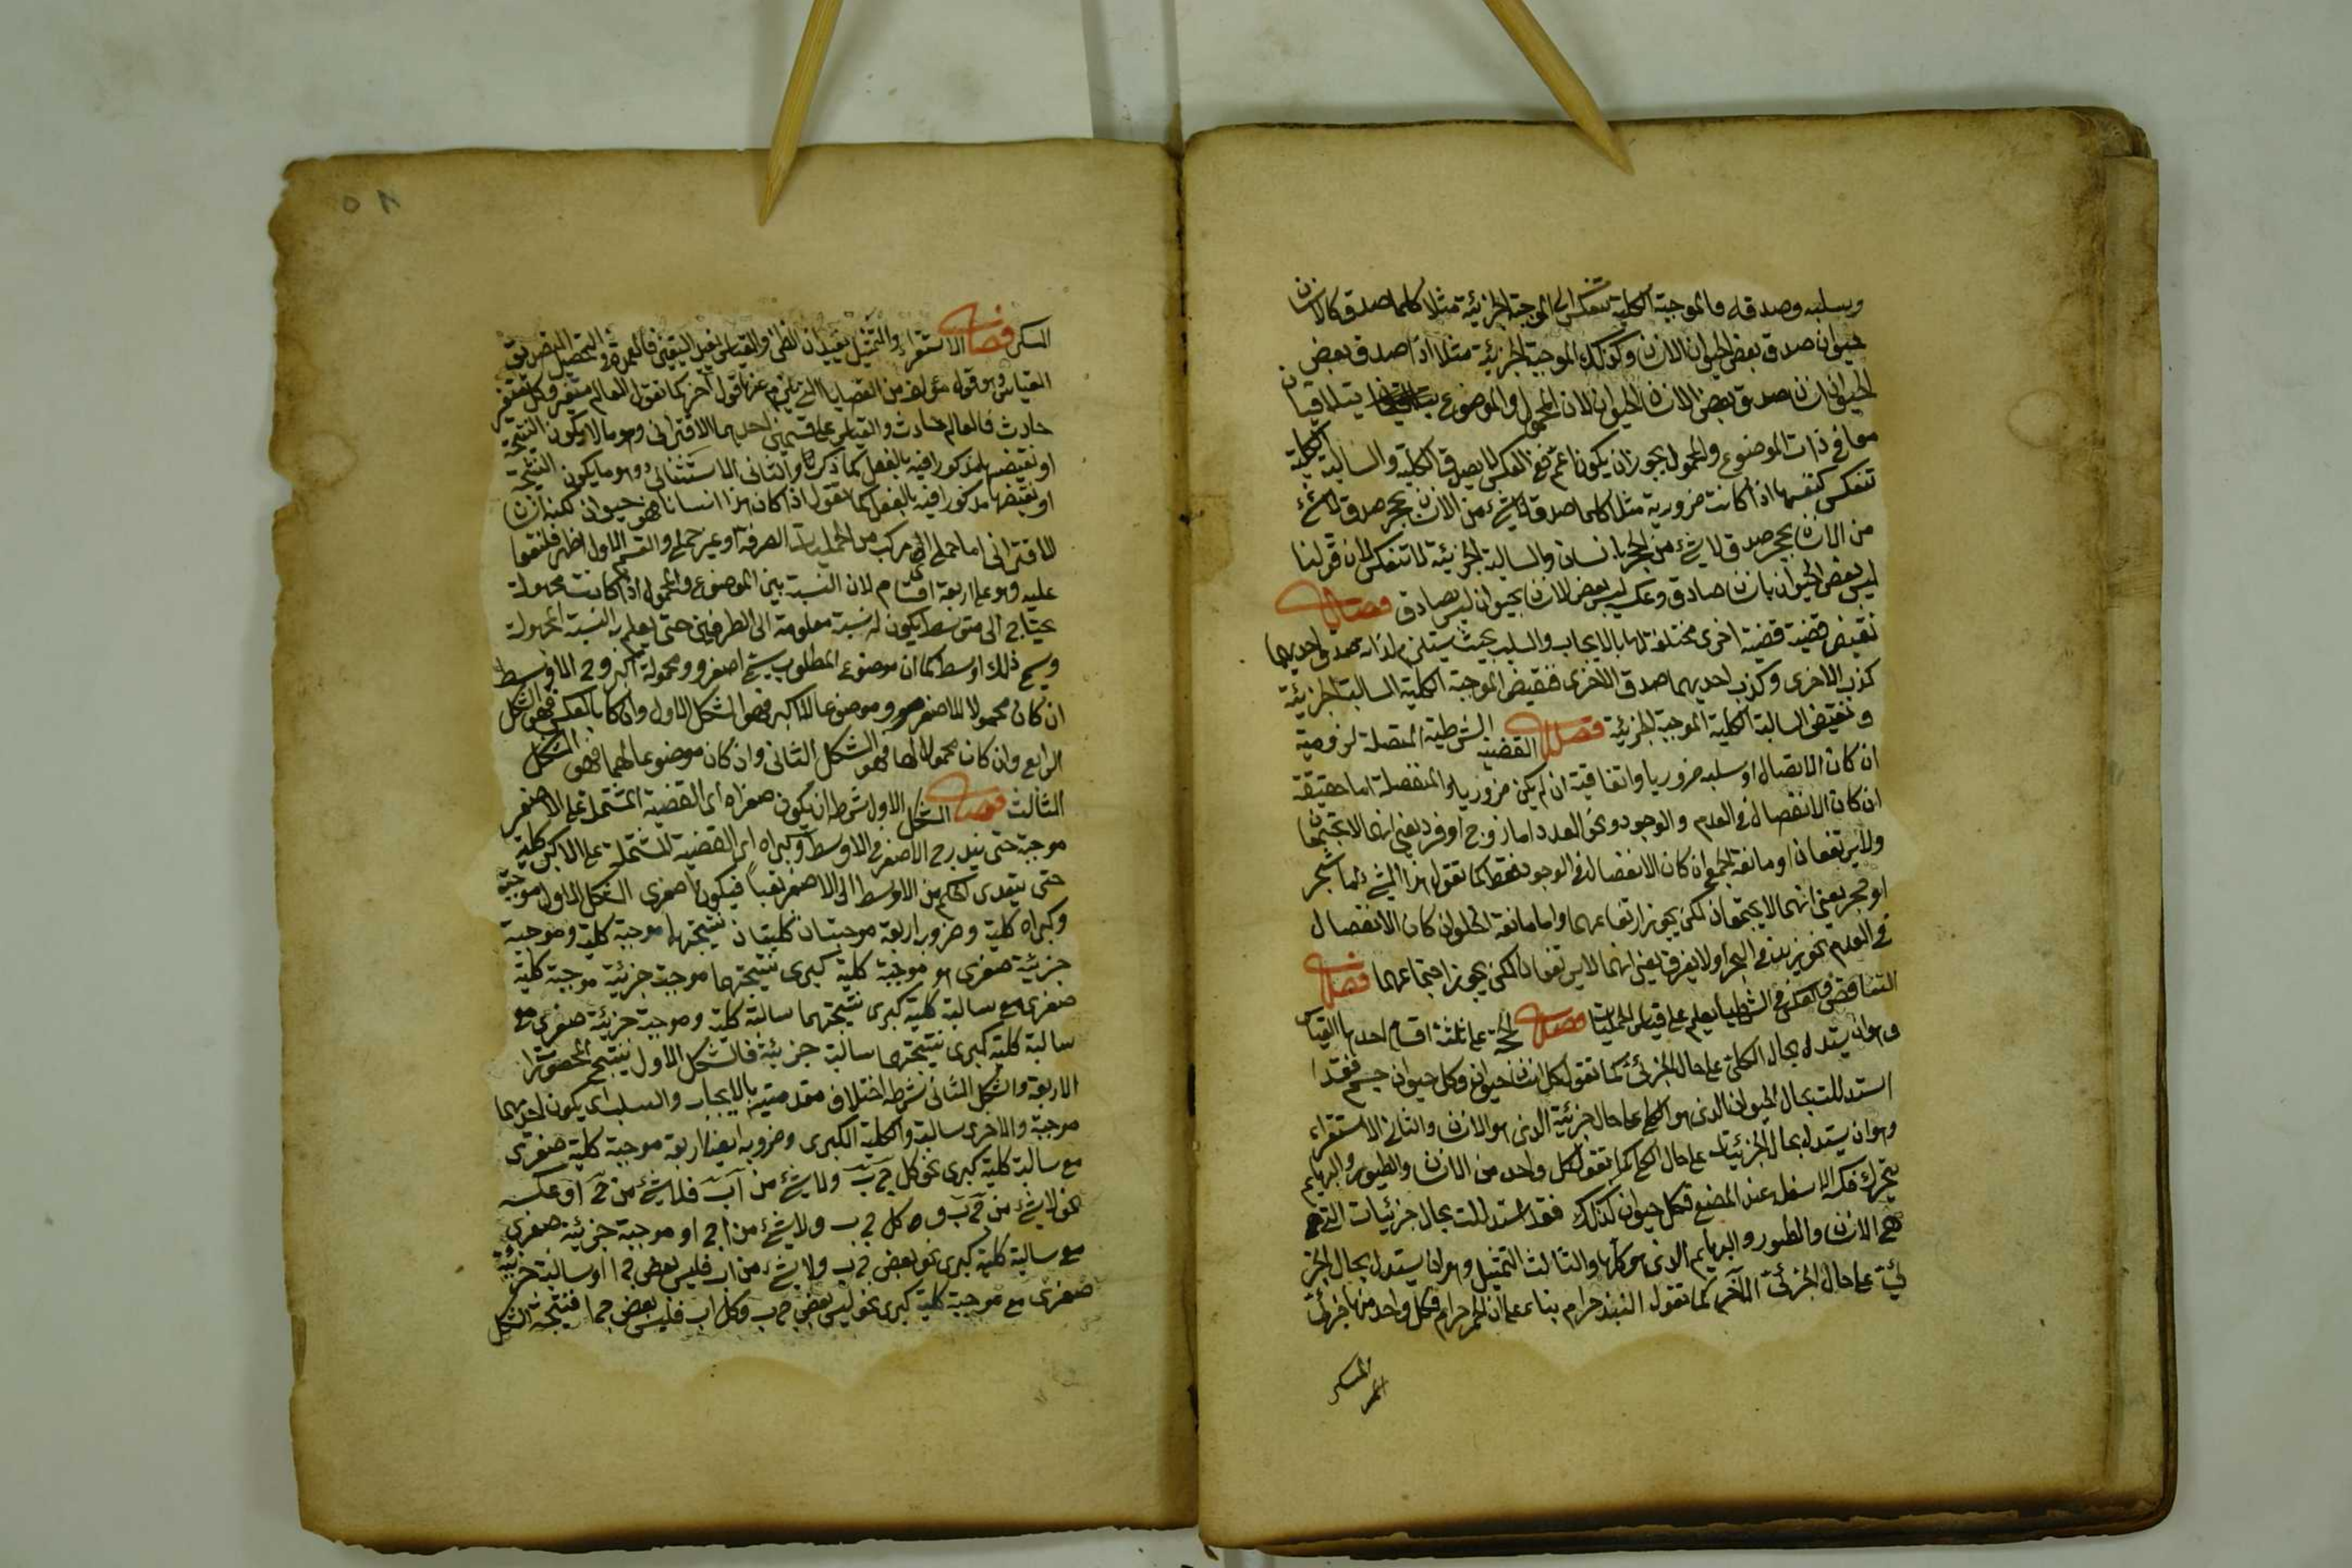 وسلبه وصدقه فالموجبة الكلية تنعكس الى الموجبة الجزئية مثلا كلما صدق كل انسان
حيوان صدق بعض الحيوان الانسان وكذلك الموجبة الجزئية مثلا اذا صدق بعض
الحيوان انسان صدق بعض الانسان الحيوان لان المحمول والموضوع يتلاقيان
معا في ذات الموضوع والمحمول يجوز ان يكون اعم ففي العكس لا يصدق الكلية والسالبة الكلية
تنعكس كنفسها اذا كانت ضرورية مثلا كلما صدق لا شيء من الانسان بحجر صدق لا شيء
من الانسان بحجر صدق لا شيء من الحجر بانسان والسالبة الجزئية لا تنعكس لان قولنا
ليس بعض الحيوان بانسان صادق وعكسه ليس بعض الانسان بحيوان ليس بصادق فصل
نقيض قضية قضية اخرى مختلفة لها بالايجاب والسلب بحيث يستلزم لذاته صدق احديهما
كذب الاخرى وكذب احديهما صدق الاخرى فنقيض الموجبة الكلية السالبة الجزئية
ونقيض السالبة الكلية الموجبة الجزئية فصل القضية الشرطية المتصلة لزومية
ان كان الاتصال او سلبه ضروريا واتفاقية ان لم يكن ضروريا والمنفصلة اما حقيقة
ان كان الانفصال في العدم والوجود ونحو العدد اما زوج او فرد يعني انهما لا يجتمعان
ولا يرتفعان او مانعة الجمع ان كان الانفصال في الوجود فقط كما تقول هذا الشيء اما شجر
او حجر يعني انهما لا يجتمعان لكن يجوز ارتفاعهما واما مانعة الخلو ان كان الانفصال
في العدم نحو زيد في البحر او لا يغرق يعني انهما لا يرتفعان لكن يجوز اجتماعهما فصل
التناقض والعكس في الشرطيات يعلم على قياس الحمليات فصل الحجة على ثلثة اقسام احدها القياس
وهو ان يستدل بحال الكلي على حال الجزئي كما تقول كل انسان حيوان وكل حيوان جسم فقد
استدللت بحال الحيوان الذي هو الكلي على حال جزئية الذي هو الانسان والثاني الاستقراء
وهو ان يستدل بحال الجزئيات على حال الكلي كما تقول كل واحد من الانسان والطيور والبهايم
يتحرك فكه الاسفل عند المضغ فكل حيوان كذلك فقد استدللت بحال جزئيات التي
هي الانسان والطيور والبهايم الذي هو كلها والثالث التمثيل وهو ان يستدل بحال الجز
ئي على حال الجزئي الآخر كما تقول النبيذ حرام بناء على ان الخمر حرام وكل واحد منها جزئي
المسكر
٥٨
المسكر فصل الاستقراء والتمثيل يفيدان الظن والقياس يفيد اليقين فالعمدة في تحصيل التصديق
القياس وهو قول مؤلف من القضايا التي يلزم عنها قول آخر كما تقول العالم متغير وكل متغير
حادث فالعالم حادث والقياس على قسمين احدهما الاقتراني وهو ما لا يكون النتيجة
او نقيضها مذكورا فيه بالفعل كما ذكرنا والثاني الاستثنائي وهو ما يكون النتيجة
او نقيضها مذكورا فيه بالفعل كما تقول اذا كان هذا انسانا فهو حيوان لكنه انسان
الاقتراني اما حملي اي مركب من الحمليات الصرفة او غير حملي والقسم الاول اظهر فلنقسم
عليه وهو على اربعة اقسام لان النسبة بين الموضوع والمحمول اذا كانت مجهولة
يحتاج الى متوسط يكون له نسبة معلومة الى الطرفين حتى يعلم به النسبة المجهولة
ويسمى ذلك اوسط كما ان موضوع المطلوب يسمى اصغر ومحموله اكبر والاوسط
ان كان محمولا للاصغر وموضوعا للاكبر فهو الشكل الاول وان كان بالعكس فهو الشكل
الرابع وان كان محمولا لهما فهو الشكل الثاني وان كان موضوعا لهما فهو الشكل
الثالث فصل الشكل الاول شرطه ان يكون صغراه اى القضية المشتملة على الاصغر
موجبة حتى يندرج الاصغر في الاوسط وكبراه اى القضية المشتملة على الاكبر كلية
حتى يتعدى الحكم من الاوسط الى الاصغر تعيبا فيكون صغرى الشكل الاول موجبة
وكبراه كلية وضروبه اربعة موجبتان كليتان نتيجتهما موجبة كلية وموجبة
جزئية صغرى مع موجبة كلية كبرى نتيجتهما موجبة جزئية موجبة كلية
صغرى مع سالبة كلية كبرى نتيجتهما سالبة كلية وموجبة جزئية صغرى مع
سالبة كلية كبرى نتيجتهما سالبة جزئية فالشكل الاول ينتج المحصورات
الاربعة والشكل الثاني شرطه اختلاف مقدمتيه بالايجاب والسلب اى يكون احديهما
موجبة والاخرى سالبة والكلية الكبرى وضروبه ايضا اربعة موجبة كلية صغرى
مع سالبة كلية كبرى نحو كل ج ب ولا شيء من آ ب فلا شيء من ج آ وعكسه
نحو لا شيء من ج ب و كل ج ب ولا شيء من ا ج او موجبة جزئية صغرى
مع سالبة كلية كبرى نحو بعض ج ب ولا شيء من اب فليس بعض ج ا او سالبة جزئية
صغرى مع موجبة كلية كبرى نحو ليس بعض ج ب وكل اب فليس بعض ج ا فنتيجة الشكل